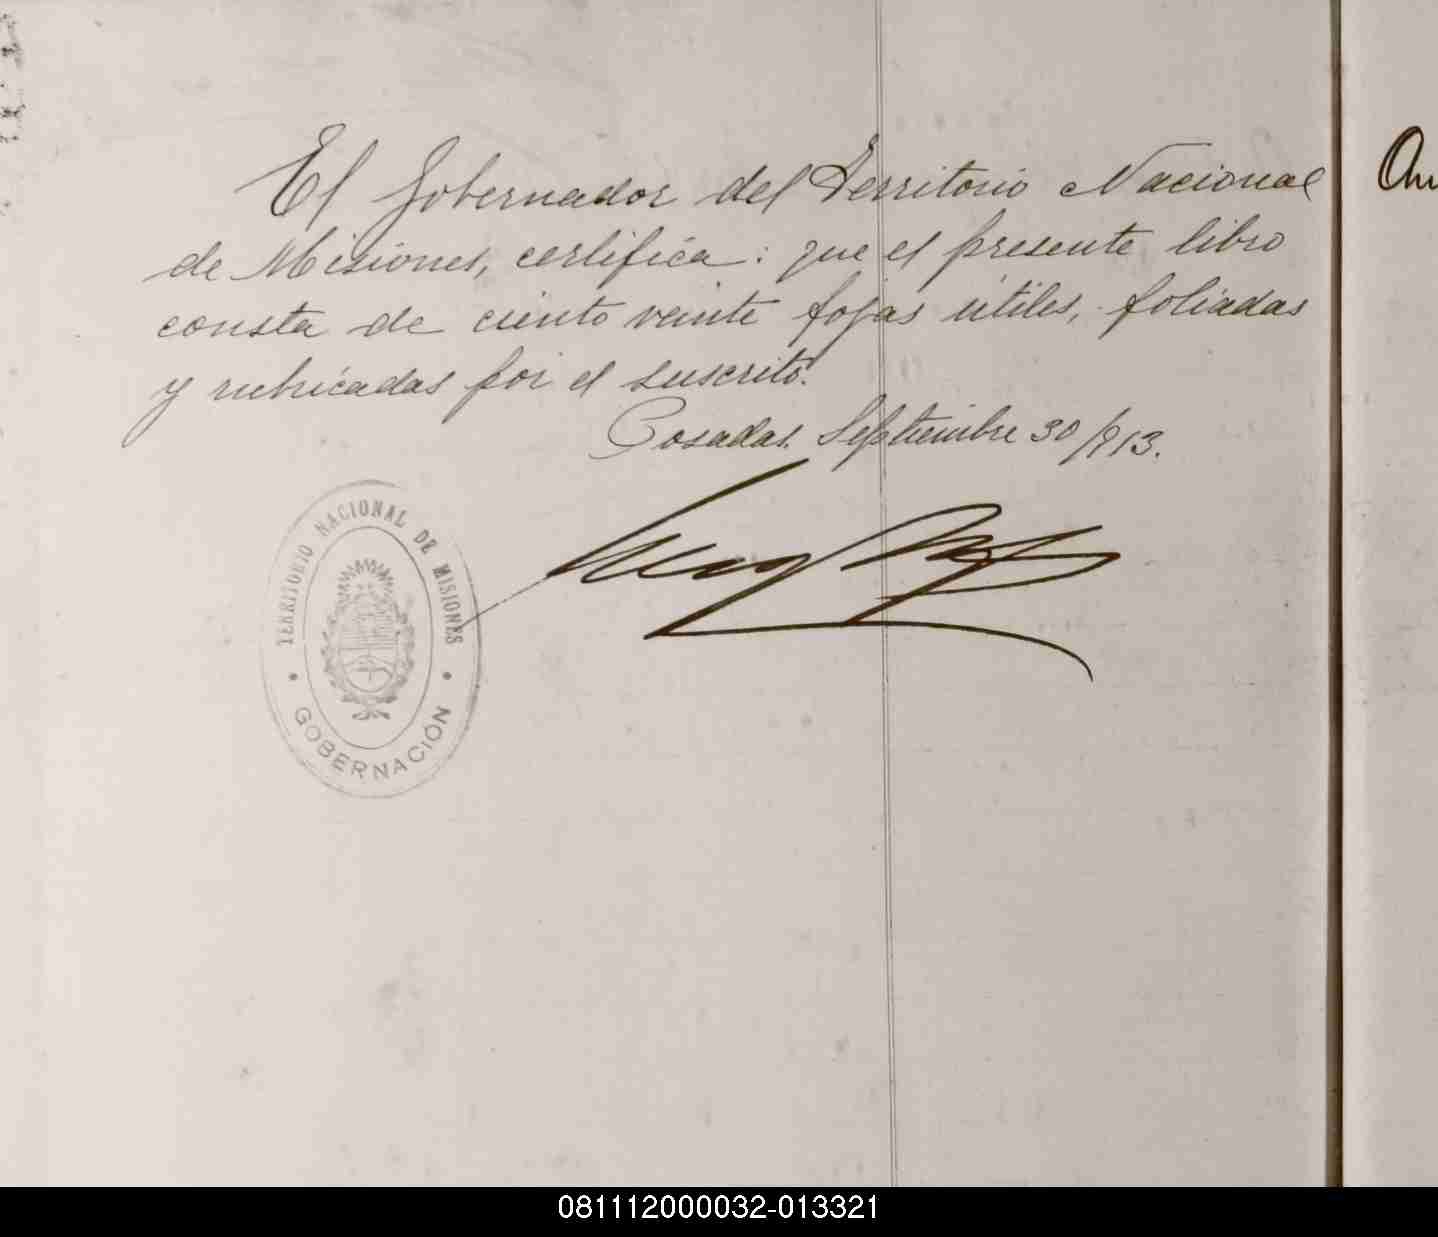 El Gobernador del Territorio Nacional
de Misiones, certifica: que el presente libro
consta de ciento veinte fojas útiles, foliadas
y rubricadas por el suscrito.
Posadas. Septiembre 30/913.
TERRITORIO NACIONAL DE MISIONES
GOBERNACIÓN
081112000032-013321